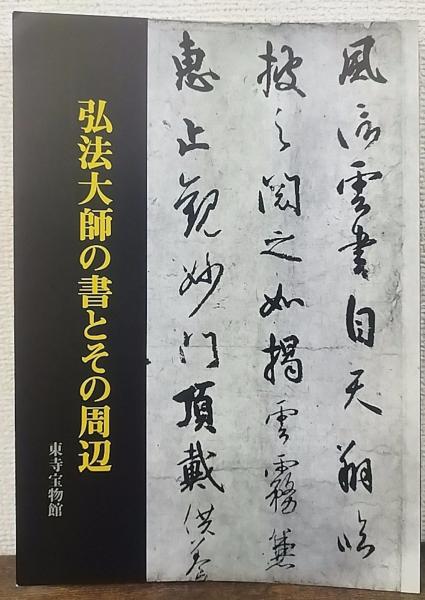 弘法大師の書とその周辺
東寺宝物館
風信雲書自天翔臨
披之閲之如揭雲霧兼
惠止観妙門頂戴供養